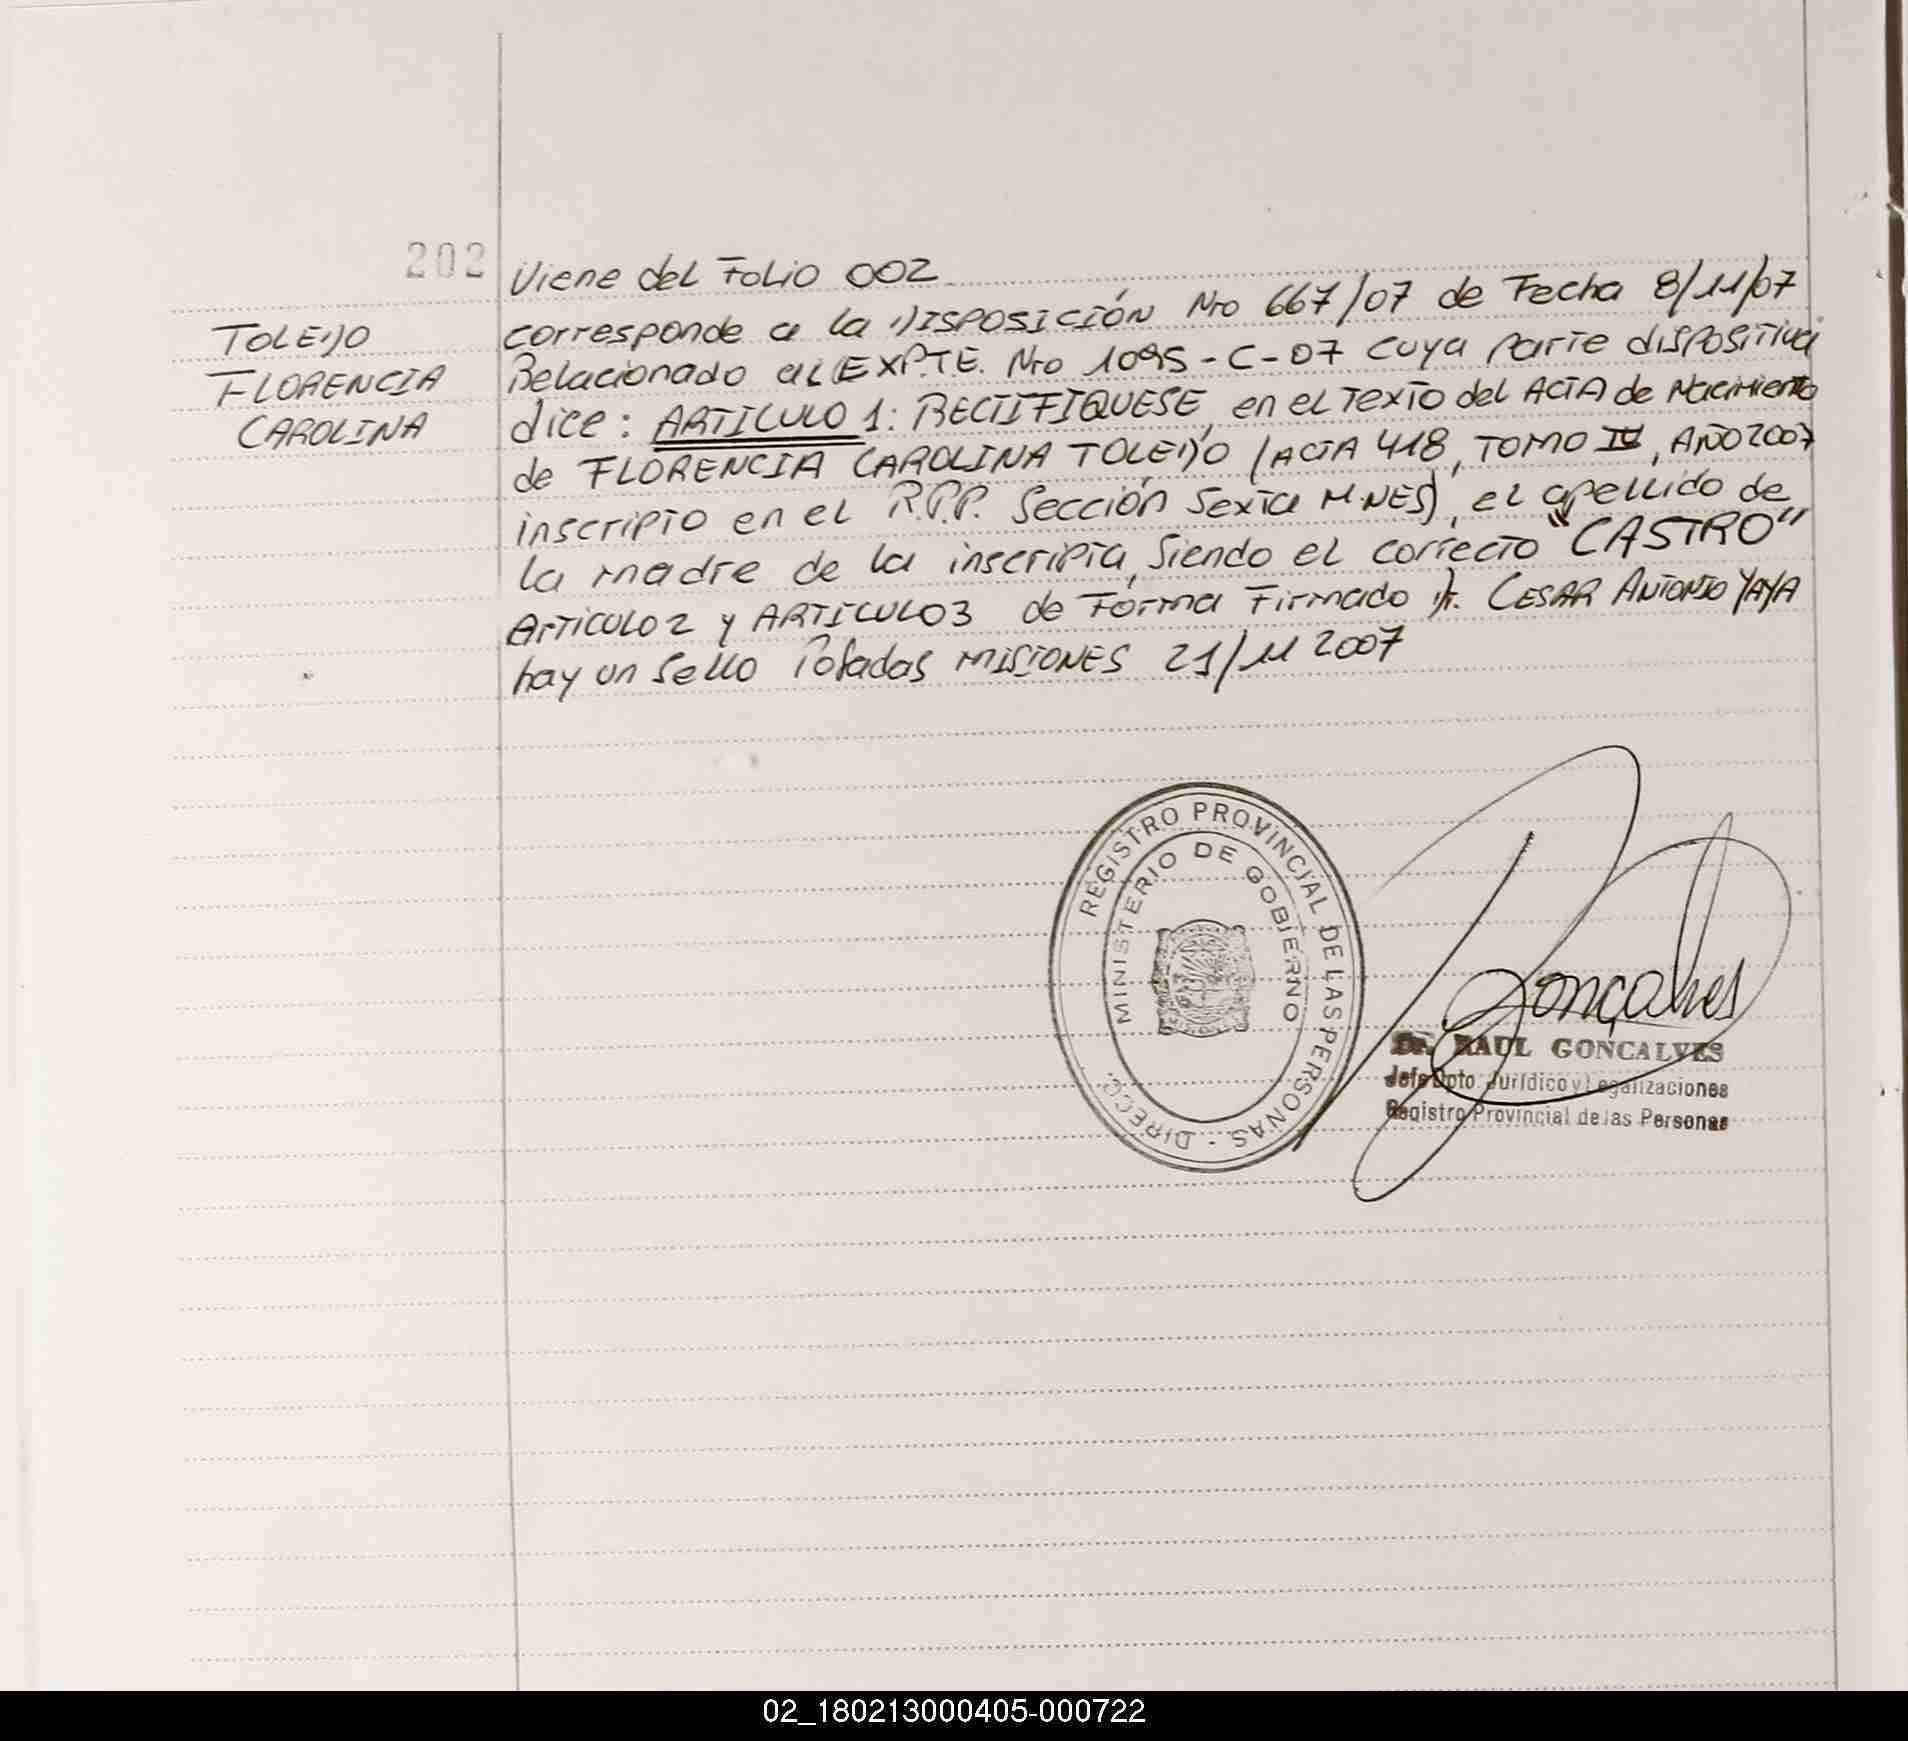 202
TOLEDO
FLORENCIA
CAROLINA
Viene del Folio 002
corresponde a la DISPOSICIÓN Nro 667/07 de Fecha 8/11/07
Relacionado al EXPTE. Nro 1095-C-07 cuya parte dispositiva
dice: ARTICULO 1: RECTIFIQUESE, en el texto del ACTA de Nacimiento
de FLORENCIA CAROLINA TOLEDO (ACTA 418, TOMO IV, AÑO 2007
inscripto en el R.P.P. Sección Sexta MNES), el apellido de
la madre de la inscripta, Siendo el correcto "CASTRO"
Articulo 2 y ARTICULO 3 de Forma Firmado Dr. CESAR ANTONIO YAYA
hay un Sello Posadas MISIONES 21/11 2007
REGISTRO PROVINCIAL DE LAS PERSONAS - DIRECC.
MINISTERIO DE GOBIERNO
Gonçalves
Dr. RAUL GONCALVES
Jefe Dpto. Jurídico y Legalizaciones
Registro Provincial de las Personas
02_180213000405-000722